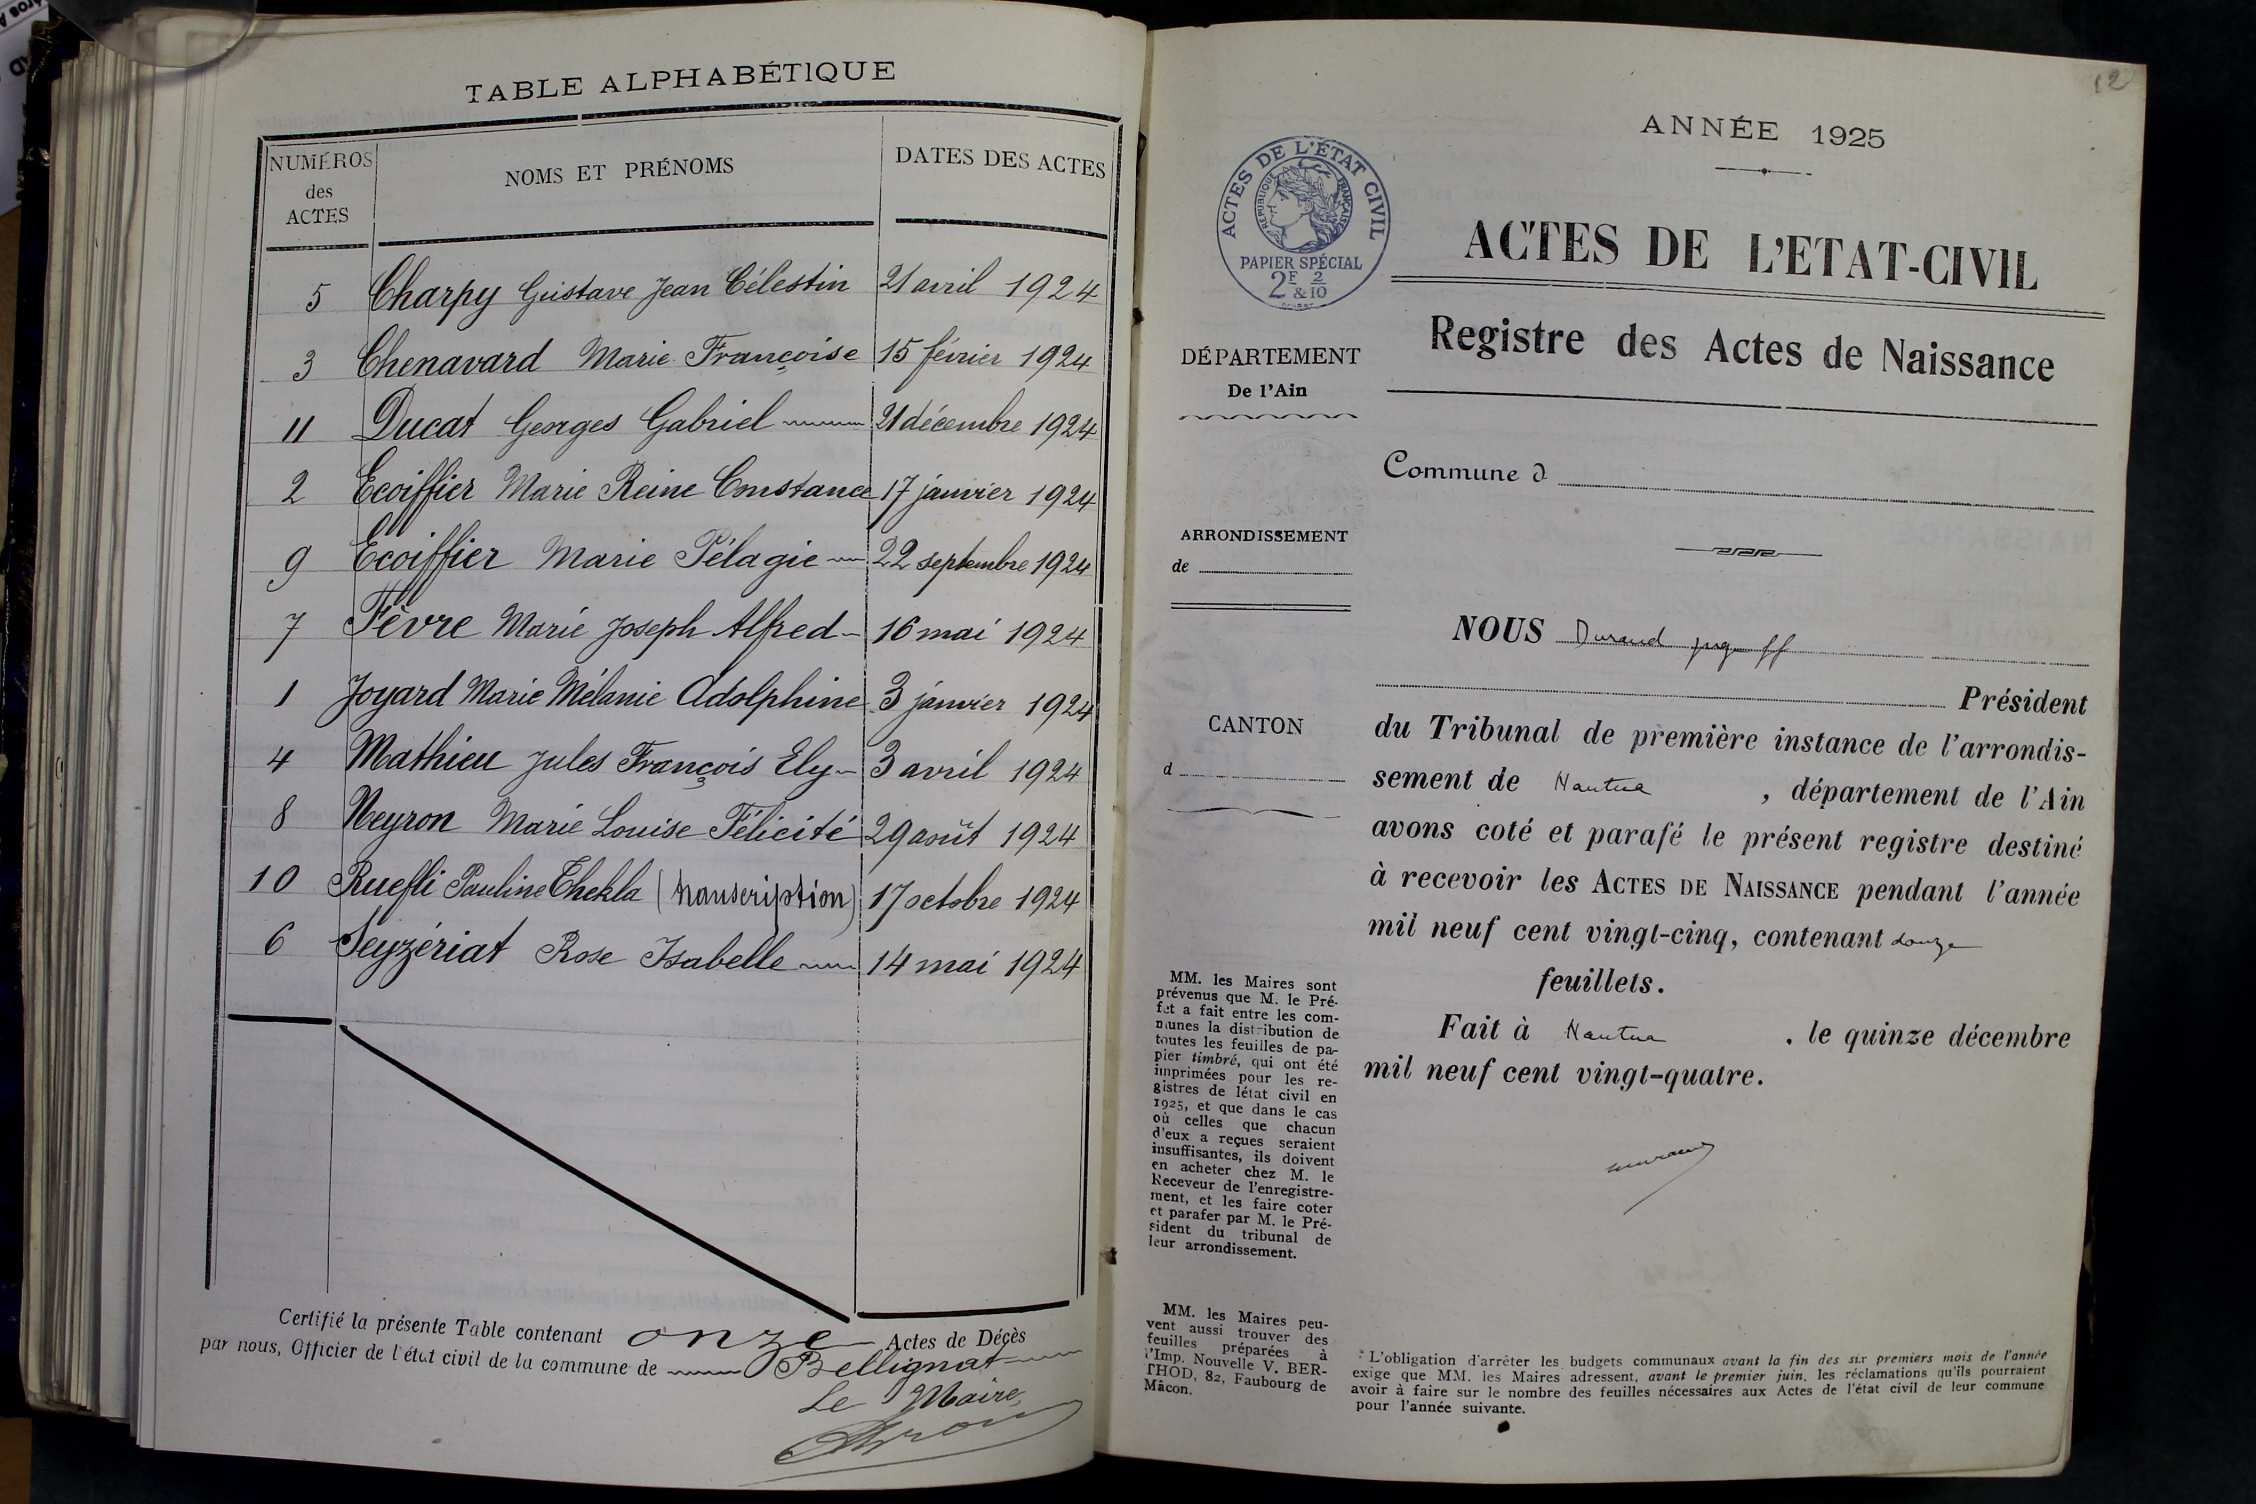 TABLE ALPHABÉTIQUE
NUMÉROS des ACTES NOMS ET PRÉNOMS DATES DES ACTES
5 Charpy Gustave Jean Célestin 21 avril 1924
3 Chenavard Marie Françoise 15 février 1924
11 Ducat Georges Gabriel 21 décembre 1924
2 Ecoiffier Marie Reine Constance 17 janvier 1924
9 Ecoiffier Marie Pélagie 22 septembre 1924
7 Fèvre Marie Joseph Alfred 16 mai 1924
1 Joyard Marie Mélanie Adolphine 3 janvier 1924
4 Mathieu Jules François Ely 3 avril 1924
8 Neyron Marie Louise Félicité 29 août 1924
10 Ruefli Pauline Thekla (transcription) 17 octobre 1924
6 Seyzériat Rose Isabelle 14 mai 1924
Certifié la présente Table contenant onze Actes de Décès
par nous, Officier de l'état civil de la commune de Bellignat
Le Maire,
12
ANNÉE 1925
ACTES DE L'ÉTAT CIVIL
RÉPUBLIQUE FRANÇAISE
PAPIER SPÉCIAL
2F & 2/10
ACTES DE L'ETAT-CIVIL
Registre des Actes de Naissance
DÉPARTEMENT
De l'Ain
Commune d
ARRONDISSEMENT
de
CANTON
d
NOUS Durand
Président
du Tribunal de première instance de l'arrondis-
sement de Nantua , département de l'Ain
avons coté et parafé le présent registre destiné
à recevoir les ACTES DE NAISSANCE pendant l'année
mil neuf cent vingt-cinq, contenant douze
feuillets.
Fait à Nantua , le quinze décembre
mil neuf cent vingt-quatre.
MM. les Maires sont
prévenus que M. le Pré-
fet a fait entre les com-
munes la distribution de
toutes les feuilles de pa-
pier timbré, qui ont été
imprimées pour les re-
gistres de létat civil en
1925, et que dans le cas
où celles que chacun
d'eux a reçues seraient
insuffisantes, ils doivent
en acheter chez M. le
Receveur de l'enregistre-
ment, et les faire coter
et parafer par M. le Pré-
sident du tribunal de
leur arrondissement.
MM. les Maires peu-
vent aussi trouver des
feuilles préparées à
l'Imp. Nouvelle V. BER-
THOD, 82, Faubourg de
Mâcon.
L'obligation d'arrêter les budgets communaux avant la fin des six premiers mois de l'année
exige que MM. les Maires adressent, avant le premier juin, les réclamations qu'ils pourraient
avoir à faire sur le nombre des feuilles nécessaires aux Actes de l'état civil de leur commune
pour l'année suivante.